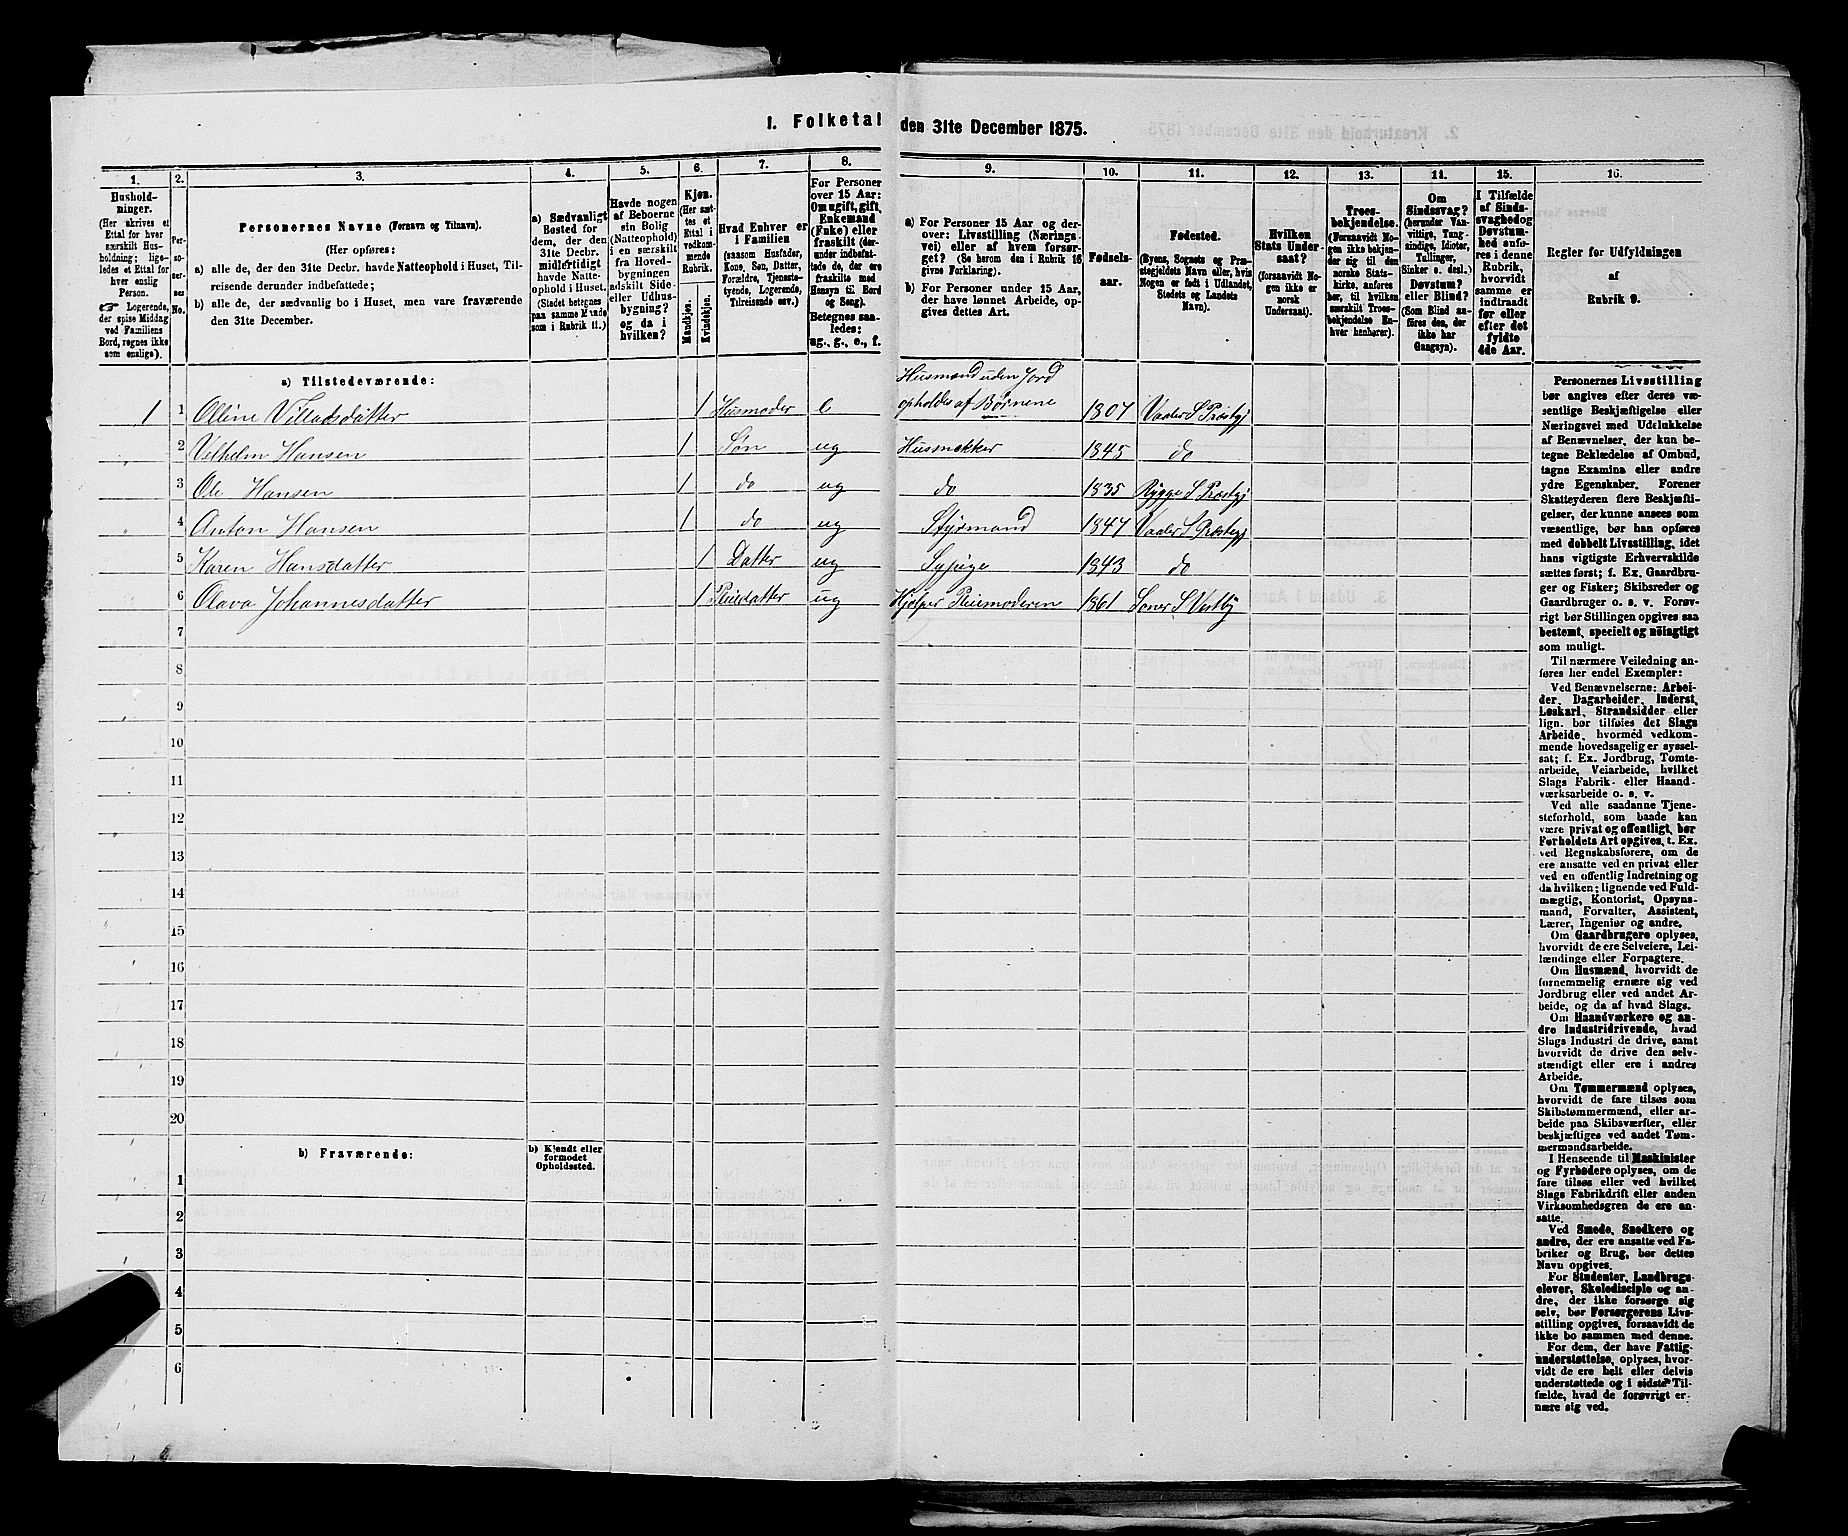 1. Folketal den 31te December 1875.
1.
Hushold-
ninger.
(Her skrives et
Ettal for hver
særskilt Hus-
holdning; lige-
ledes et Ettal for
hver enslig
Person.
☞ Logerende,
der spise Middag
ved Familiens
Bord, regnes ikke
som enslige).
2.
Per-
so-
ner-
nes
No.
3.
Personernes Navne (Fornavn og Tilnavn).
(Her opføres:
a) alle de, der den 31te Decbr. havde Natteophold i Huset, Til-
reisende derunder indbefattede;
b) alle de, der sædvanlig bo i Huset, men vare fraværende
den 31te December.
4.
a) Sædvanligt
Bosted for
dem, der den
31te Decbr.
midlertidigt
havde Natte-
ophold i Huset.
(Stedet betegnes
paa samme Maade
som i Rubrik 11.)
5.
Havde nogen
af Beboerne
sin Bolig
(Natteophold)
i en særskilt
fra Hoved-
bygningen
adskilt Side-
eller Udhus-
bygning?
og da i
hvilken?
6.
Kjøn.
(Her sæt-
tes et
Ettal i
vedkom-
mende
Rubrik.
Mandkjøn.
Kvindekjøn.
7.
Hvad Enhver er
i Familien
(saasom Husfader,
Kone, Søn, Datter,
Forældre, Tjeneste-
tyende, Logerende,
Tilreisende osv.)
8.
For Personer
over 15 Aar:
Om ugift, gift,
Enkemand
(Enke) eller
fraskilt (der-
under indbefat-
tede de, der ere
fraskilte med
Hensyn til Bord
og Seng).
Betegnes saa-
ledes:
ug., g., e., f.
9.
a) For Personer 15 Aar og der-
over: Livsstilling (Nærings-
vei) eller af hvem forsør-
get? (Se herom den i Rubrik 16
givne Forklaring).
b) For Personer under 15 Aar,
der have lønnet Arbeide, op-
gives dettes Art.
10.
Fødsels-
aar.
11.
Fødested.
(Byens, Sognets og Præ-
stegjeldets Navn eller, hvis
Nogen er født i Udlandet,
Stedets og Landets
Navn).
12.
Hvilken
Stats Under-
saat?
(forsaavidt No-
gen ikke er
norsk
Undersaat).
13.
Troes-
bekjendelse.
(Forsaavidt No-
gen ikke bekjen-
der sig til den
norske Stats-
kirke, anføres
her, til hvilken
særskilt Troes-
bekjendelse En-
hver henhører).
14.
Om
Sindssvag?
(herunder Van-
vittige, Tung-
sindige, Idioter,
Tullinger,
Sinker o. desl.)
Døvstum?
eller Blind?
(Som Blind an-
føres den, der
ikke har
Gangsyn).
15.
I Tilfælde
af Sinds-
svaghed og
Døvstum-
hed anfø-
res i denne
Rubrik,
hvorvidt
samme er
indtraadt
før eller
efter det
fyldte
4de Aar.
16.
Regler for Udfyldningen
af
Rubrik 9.
a) Tilstedeværende:
1 1 Olline Villadsdatter 1 Husmoder e Husmand uden Jord opholdes af Børnene 1807 Vaaler S Præstgj
2 Vilhelm Hansen 1 Søn ug Husmækker 1845 do
3 Ole Hansen 1 do ug do 1835 Rygge S Præstgj
4 Anton Hansen 1 do ug Styrmand 1847 Vaaler S Præstgj
5 Karen Hansdatter 1 Datter ug Sypige 1843 do
6 Olava Johannesdatter 1 Pleiedatter ug Hjelper Pleiemoderen 1861 Soner S Vestby
7
8
9
10
11
12
13
14
15
16
17
18
19
20
b) Fraværende:
b) Kjendt eller
formodet
Opholdssted.
1
2
3
4
5
6
Personernes Livsstilling
bør angives efter deres væ-
sentlige Beskjæftigelse eller
Næringsvei med Udelukkelse
af Benævnelser, der kun be-
tegne Beklædelse af Ombud,
tagne Examina eller andre
ydre Egenskaber. Forener
Skatteyderen flere Beskjæfti-
gelser, der kunne ansees som
væsentlige, bør han opføres
med dobbelt Livsstilling, idet
hans vigtigste Erhvervskilde
sættes først; f. Ex. Gaardbru-
ger og Fisker; Skibsreder og
Gaardbruger o. s. v. Forøv-
rigt bør Stillingen opgives saa
bestemt, specielt og nöiagtigt
som muligt.
Til nærmere Veiledning an-
føres her endel Exempler:
Ved Benævnelserne: Arbei-
der, Dagarbeider, Inderst,
Løskarl, Strandsidder eller
lign. bør tilføies det Slags
Arbeide, hvormed vedkom-
mende hovedsagelig er syssel-
sat; f. Ex. Jordbrug, Tomte-
arbeide, Veiarbeide, hvilket
Slags Fabrik- eller Haand-
værksarbeide o. s. v.
Ved alle saadanne Tjene-
steforhold, som baade kan
være privat og offentligt, bør
Forholdets Art opgives, t. Ex.
ved Regnskabsførere, om de
ere ansatte ved en privat eller
ved en offentlig Indretning og
da hvilken; lignende ved Fuld-
mægtig, Kontorist, Opsyns-
mand, Forvalter, Assistent,
Lærer, Ingeniør og andre.
Om Gaardbrugere oplyses,
hvorvidt de ere Selveiere, Lei-
lændinge eller Forpagtere.
Om Husmænd, hvorvidt de
fornemmelig ernære sig ved
Jordbrug eller ved andet Ar-
beide, og da af hvad Slags.
Om Haandværkere og an-
dre Industridrivende, hvad
Slags Industri de drive, samt
hvorvidt de drive den selv-
stændigt eller ere i andres
Arbeide.
Om Tømmermænd oplyses,
hvorvidt de fare tilsøs som
Skibstømmermænd, eller ar-
beide paa Skibsværfter, eller
beskjæftiges ved andet Tøm-
mermandsarbeide.
I Henseende til Maskinister
og Fyrbødere oplyses, om de
fare tilsøs eller ved hvilket
Slags Fabrikdrift eller anden
Virksomhedsgren de ere an-
satte.
Ved Smede, Snedkere og
andre, der ere ansatte ved Fa-
briker og Brug, bør dettes
Navn opgives.
For Studenter, Landbrugs-
elever, Skoledisciple og an-
dre, der ikke forsørge sig
selv, bør Forsørgerens Livs-
stilling opgives, forsaavidt de
ikke bo sammen med denne.
For dem, der have Fattig-
understøttelse, oplyses, hvor-
vidt de ere helt eller delvis
understøttede og i sidste Til-
fælde, hvad de forøvrigt er-
nære sig ved.